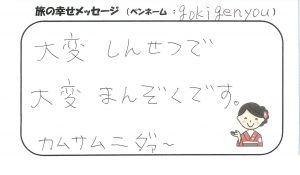 旅の幸せメッセージ (ペンネーム:gokigenyou)
大変 しんせつで
大変 まんぞくです。
カムサムニダァ〜